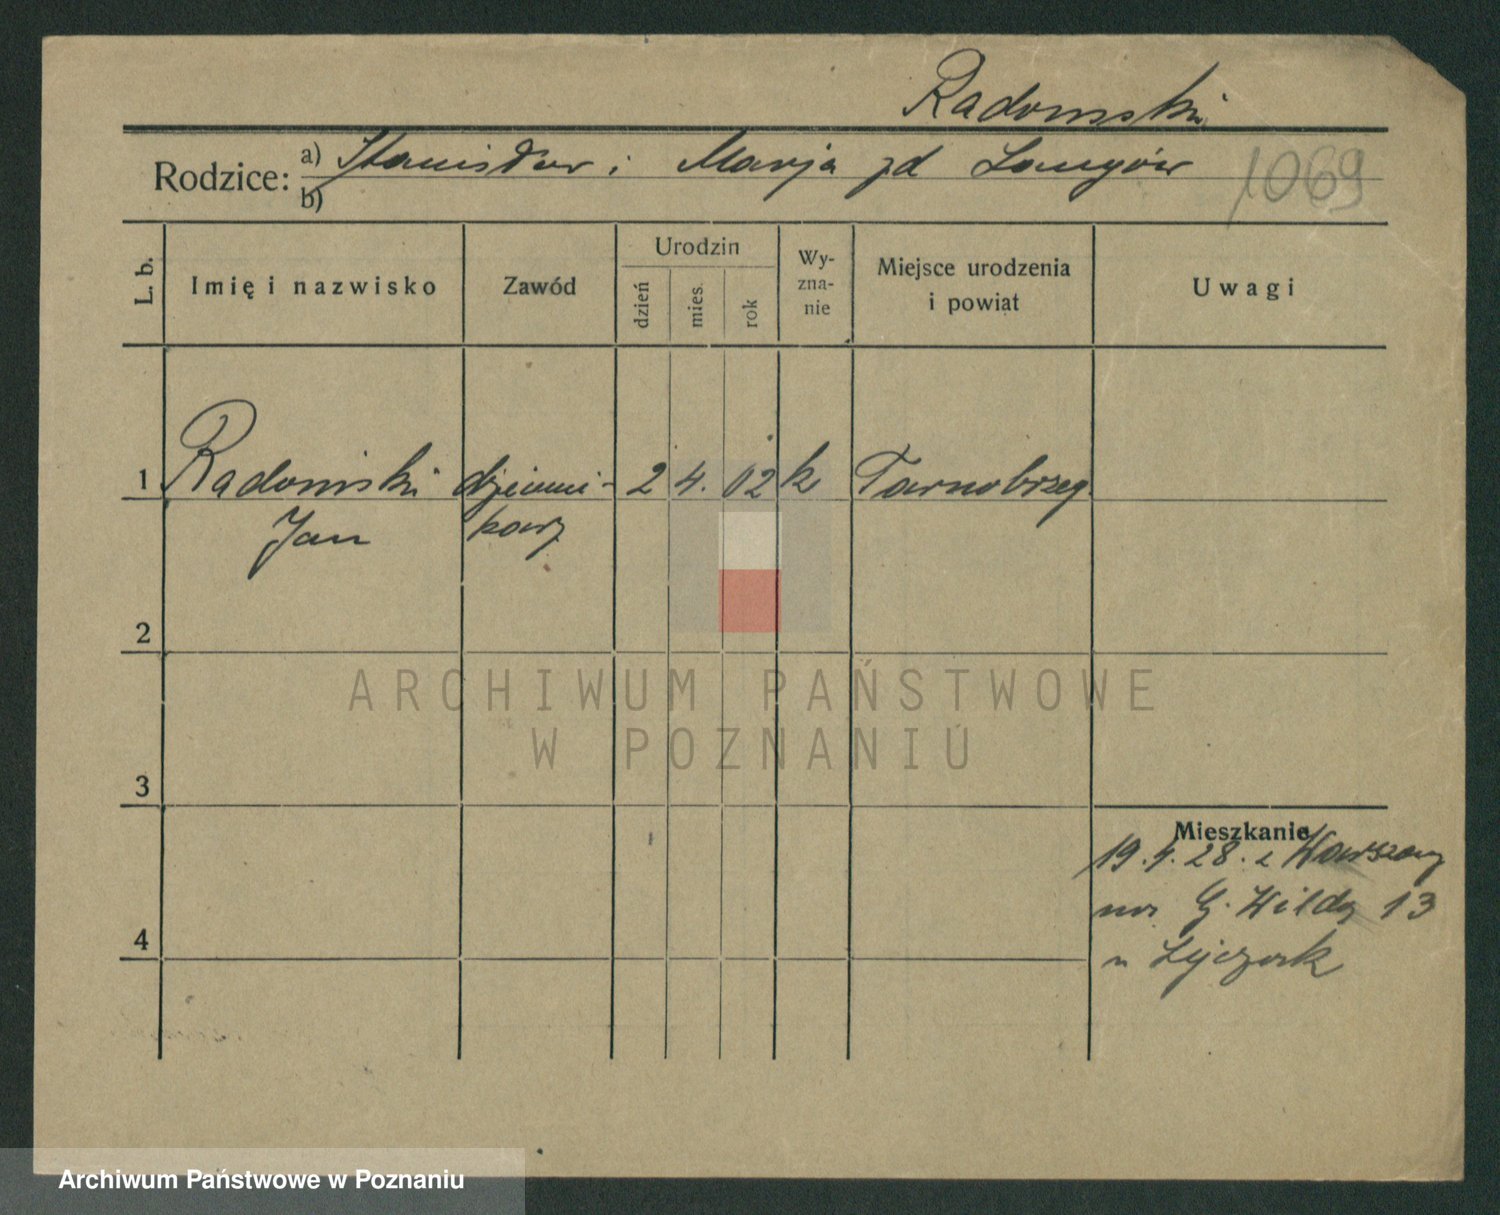 Radomski
Rodzice: a) Stanisław i Marja zd Langów 1069
b)
L. b. Imię i nazwisko Zawód Urodzin dzień mies. rok Wy-zna-nie Miejsce urodzenia i powiat Uwagi
1 Radomski dzienni- 2 4. 02 k Tarnobrzeg
Jan karz
2
ARCHIWUM PAŃSTWOWE
W POZNANIU
3
Mieszkanie
19.4.28. z Warszawy
G. Wilda 13
4
Archiwum Państwowe w Poznaniu